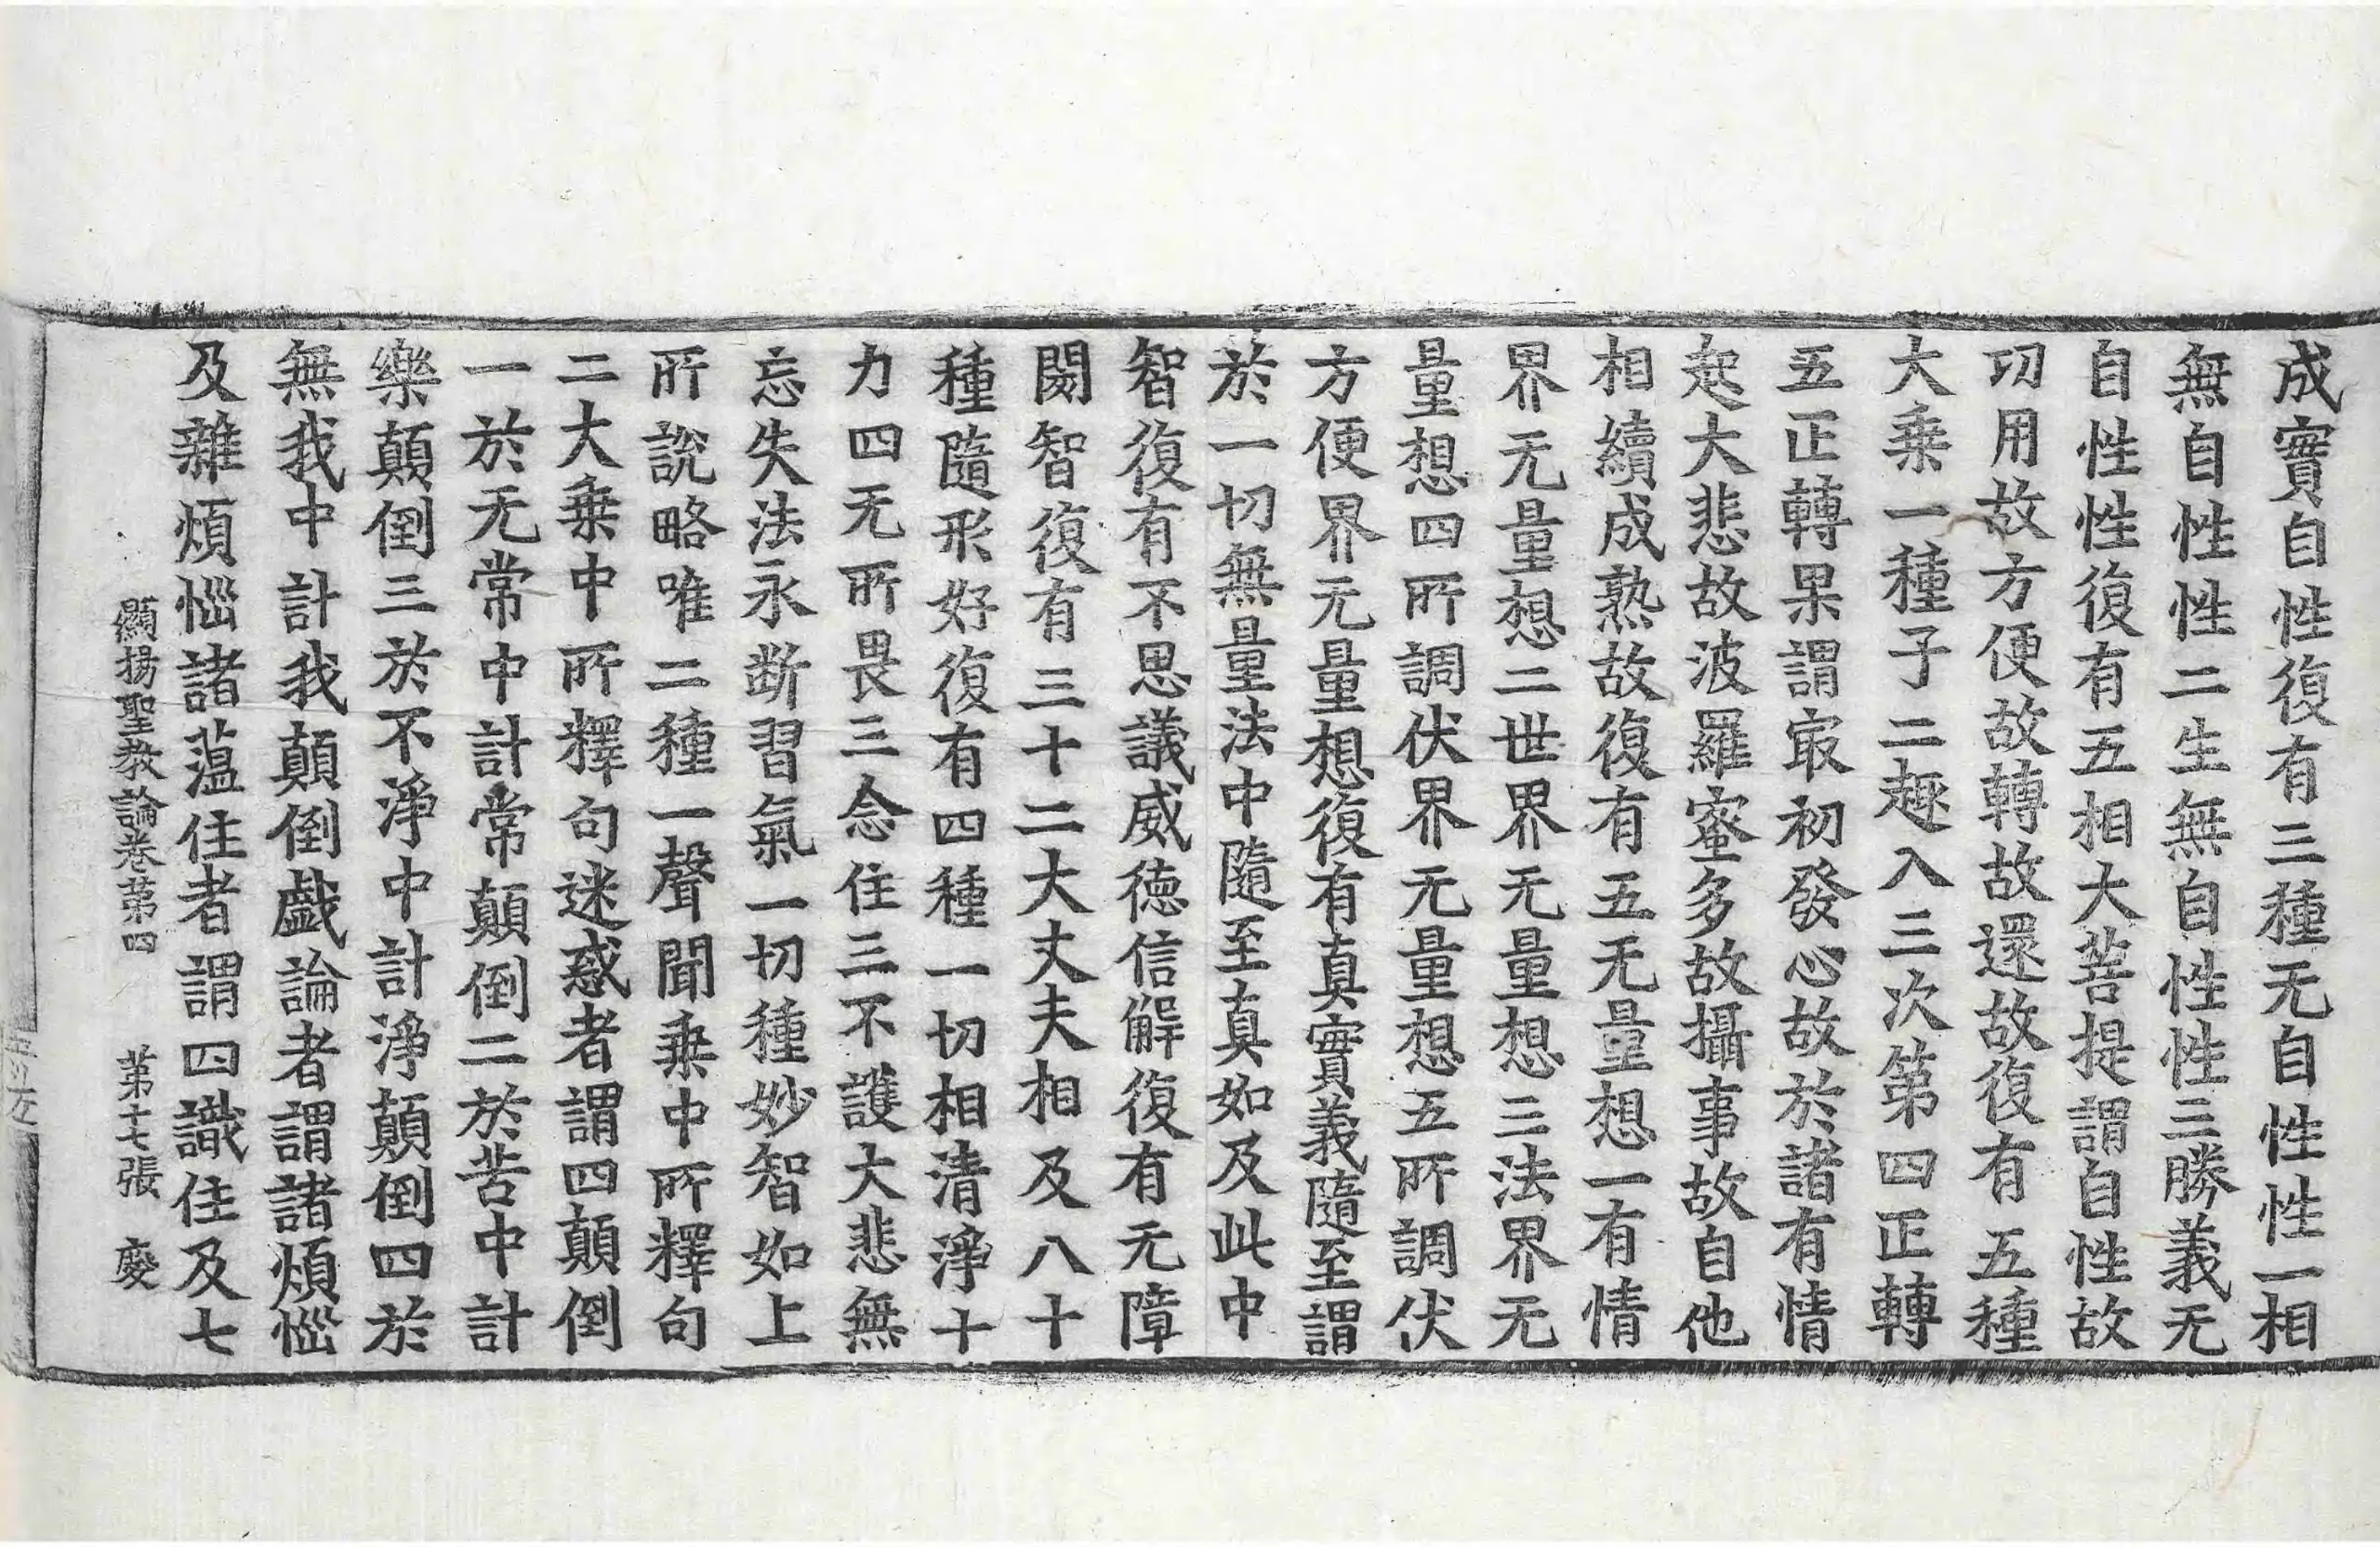 成實自性復有三種无自性性一相
無自性性二生無自性性三勝義无
自性性復有五相大菩提謂自性故
功用故方便故轉故還故復有五種
大乗一種子二趣入三次第四正轉
五正轉果謂㝡初發心故於諸有情
起大悲故波羅蜜多故攝事故自他
相續成熟故復有五无量想一有情
界无量想二世界无量想三法界无
量想四所調伏界无量想五所調伏
方便界无量想復有真實義隨至謂
於一切無量法中隨至真如及此中
智復有不思議威德信解復有无障
閡智復有三十二大丈夫相及八十
種隨形好復有四種一切相清淨十
力四无所畏三念住三不護大悲無
忘失法永断習氣一切種妙智如上
所說略唯二種一聲聞乗中所釋句
二大乗中所釋句迷惑者謂四顛倒
一於无常中計常顛倒二於苦中計
樂顛倒三於不淨中計淨顛倒四於
無我中計我顛倒戱論者謂諸煩惱
及雜煩惱諸薀住者謂四識住及七
顯揚聖教論卷苐四　苐十七張　慶